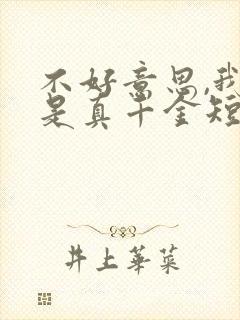 不好意思,我
是真千金短
井上華菜